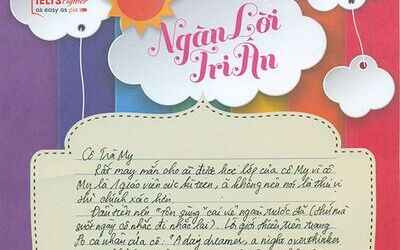 IELTS Fighter
as easy as pie
Ngàn Lời
Tri Ân
Cô Trà My
Rất may mắn cho ai được học lớp của cô My vì cô
My là 1 giáo viên cực kì teen, à không nên nói là thú vị
thì chính xác hơn.
Đầu tiên nên "tôn giọng" cái vẻ ngoài trước đã (thứ mà
suốt ngày cô nhắc đi nhắc lại). Lời giới thiệu trên trang
fb cá nhân của cô: "A day dreamer, a night overthinker